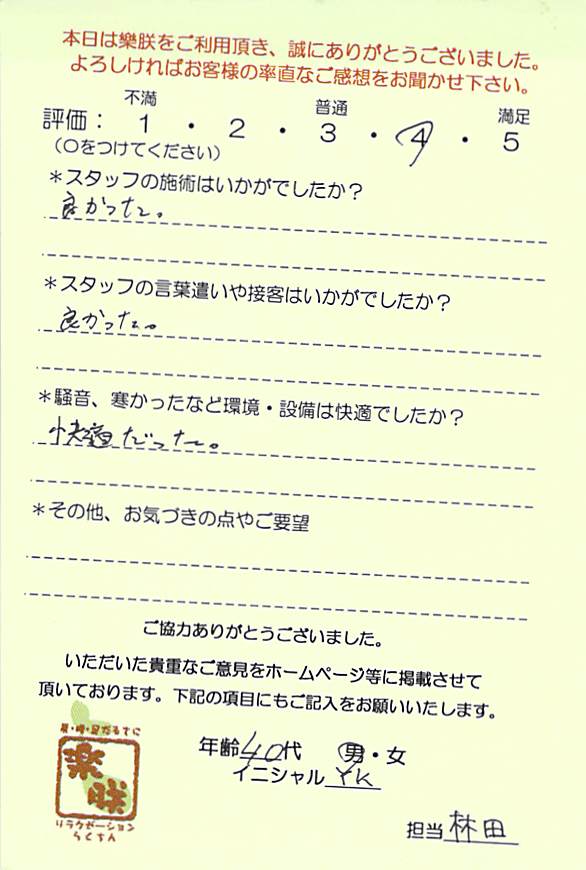 本日は樂朕をご利用頂き、誠にありがとうございました。
よろしければお客様の率直なご感想をお聞かせ下さい。
不満 普通 満足
評価： 1 ・ 2 ・ 3 ・ 4 ・ 5
（○をつけてください）
＊スタッフの施術はいかがでしたか？
良かった。
＊スタッフの言葉遣いや接客はいかがでしたか？
良かった。
＊騒音、寒かったなど環境・設備は快適でしたか？
快適だった。
＊その他、お気づきの点やご要望
ご協力ありがとうございました。
いただいた貴重なご意見をホームページ等に掲載させて
頂いております。下記の項目にもご記入をお願いいたします。
年齢40代 男・女
イニシャル YK
樂
朕
リラクゼーション
らくちん
担当 林田